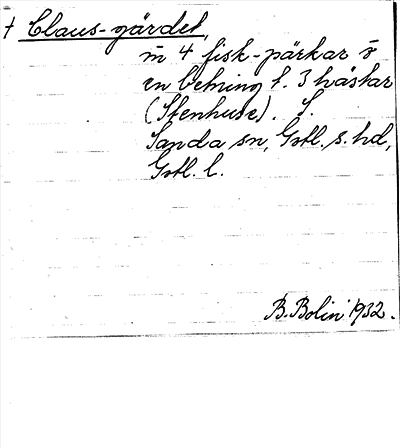 † Claus-gärdet,
m 4 fisk-pärkar o
en betning f. 3 hästar
(Stenhuse). S.
Sanda sn, Gotl. s. hd,
Gotl. l.
B. Bolin 1932.